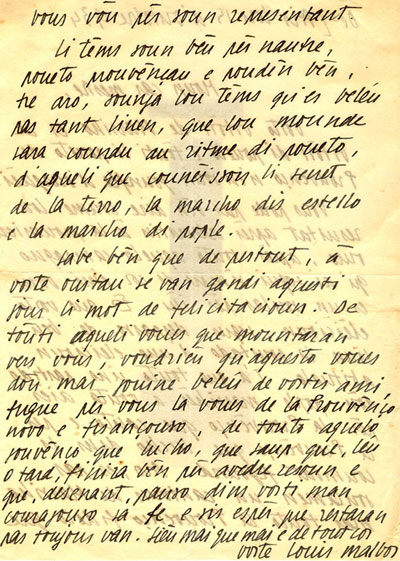 vous vòu pèr soun representant
Li tèms soun bèn pèr nautre,
poueto prouvençau e poudèn bèn,
tre aro, sounja lou tèms qu'es belèu
pas tant liuen, que lou mounde
sara coundu au ritme di poueto,
d'aqueli que couneisson li secret
de la terro, la marcho dis estello
e la marcho di pople.
Sabe bèn que de pertout, à
voste oustau se van gandi aquesti
jour li mot de felicitacioun. De
touti aqueli voues que mountaran
vers vous, voudriéu qu'aquesto voues
dóu mai jouine belèu de vostis ami,
fugue pèr vous la voues de la Prouvènço
novo e fisançouso, de touto aquelo
jouvènço que lucho, que saup que, lèu
o tard, finira bèn pèr avedre resoun e
que, desenant, pauso dins vosti man
couragouso sa fe e sis esper que restaran
pas toujour van. Siéu mai que mai e de tout cor
voste Louis Malbos